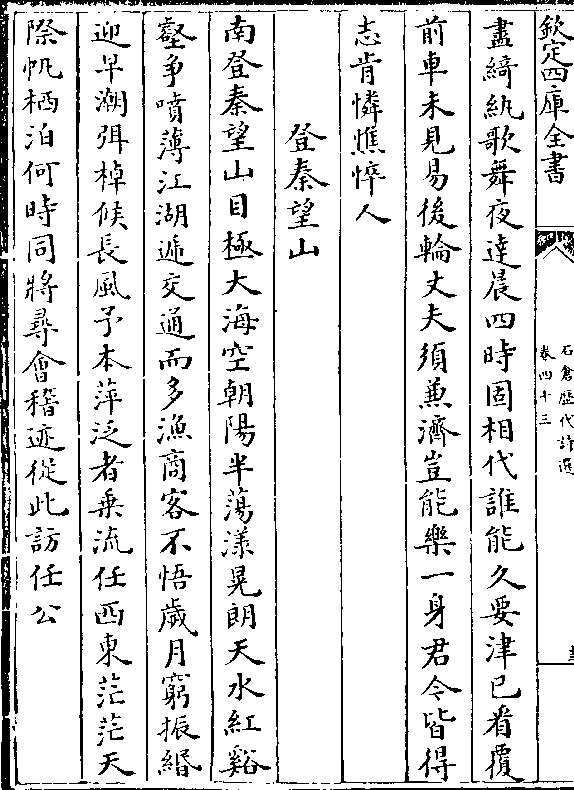 欽定四庫全書
石倉歷代詩選
卷四十三
盡綺紈歌舞夜達晨四時固相代誰能久要津已看覆
前車未見易後輪丈夫須兼濟豈能樂一身君今皆得
志肯憐憔悴人
登秦望山
南登秦望山目極大海空朝陽半蕩漾晃朗天水紅谿
壑爭噴薄江湖遞交通而多漁商客不悟歲月窮振緡
迎早潮弭棹候長風予本萍泛者乗流任西東茫茫天
際帆栖泊何時同將尋會稽迹從此訪任公